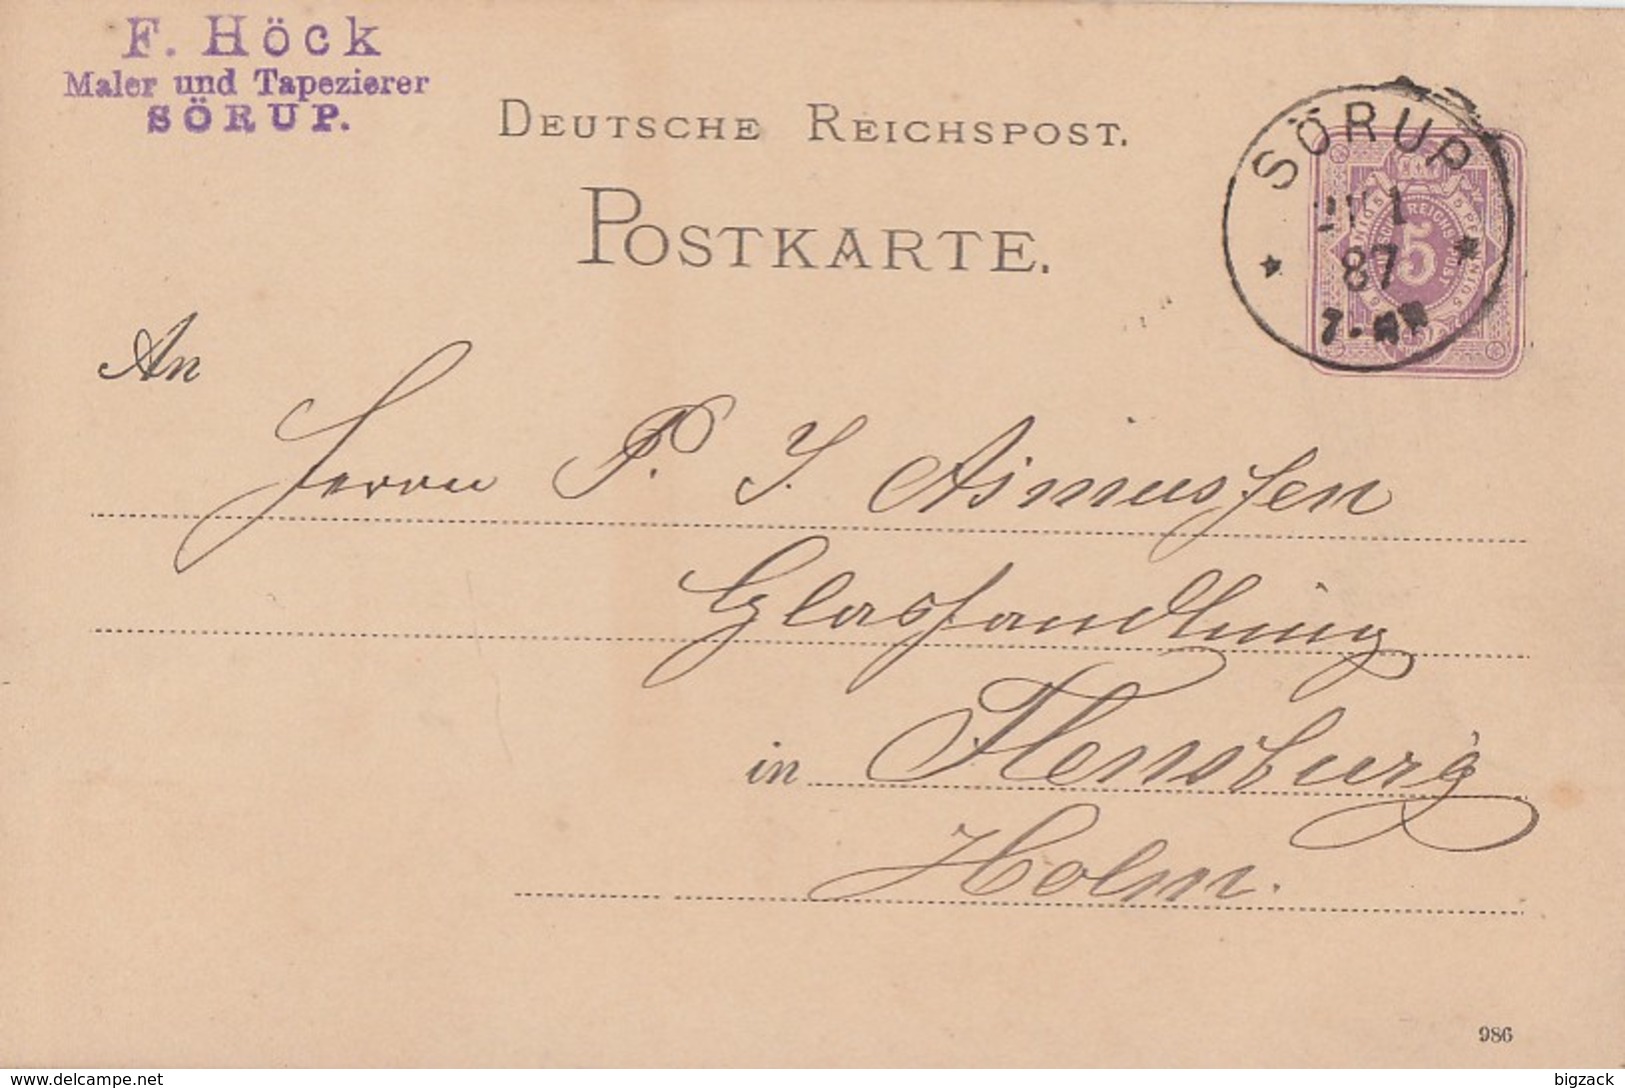 F. Höck
Maler und Tapezierer
SÖRUP.
DEUTSCHE REICHSPOST.
POSTKARTE.
SÖRUP
1
87
7-
5
REICHSPOST
An
Herrn P. J. Asmussen
Glashandlung
in Flensburg
Holm.
986
www.delcampe.net
bigzack